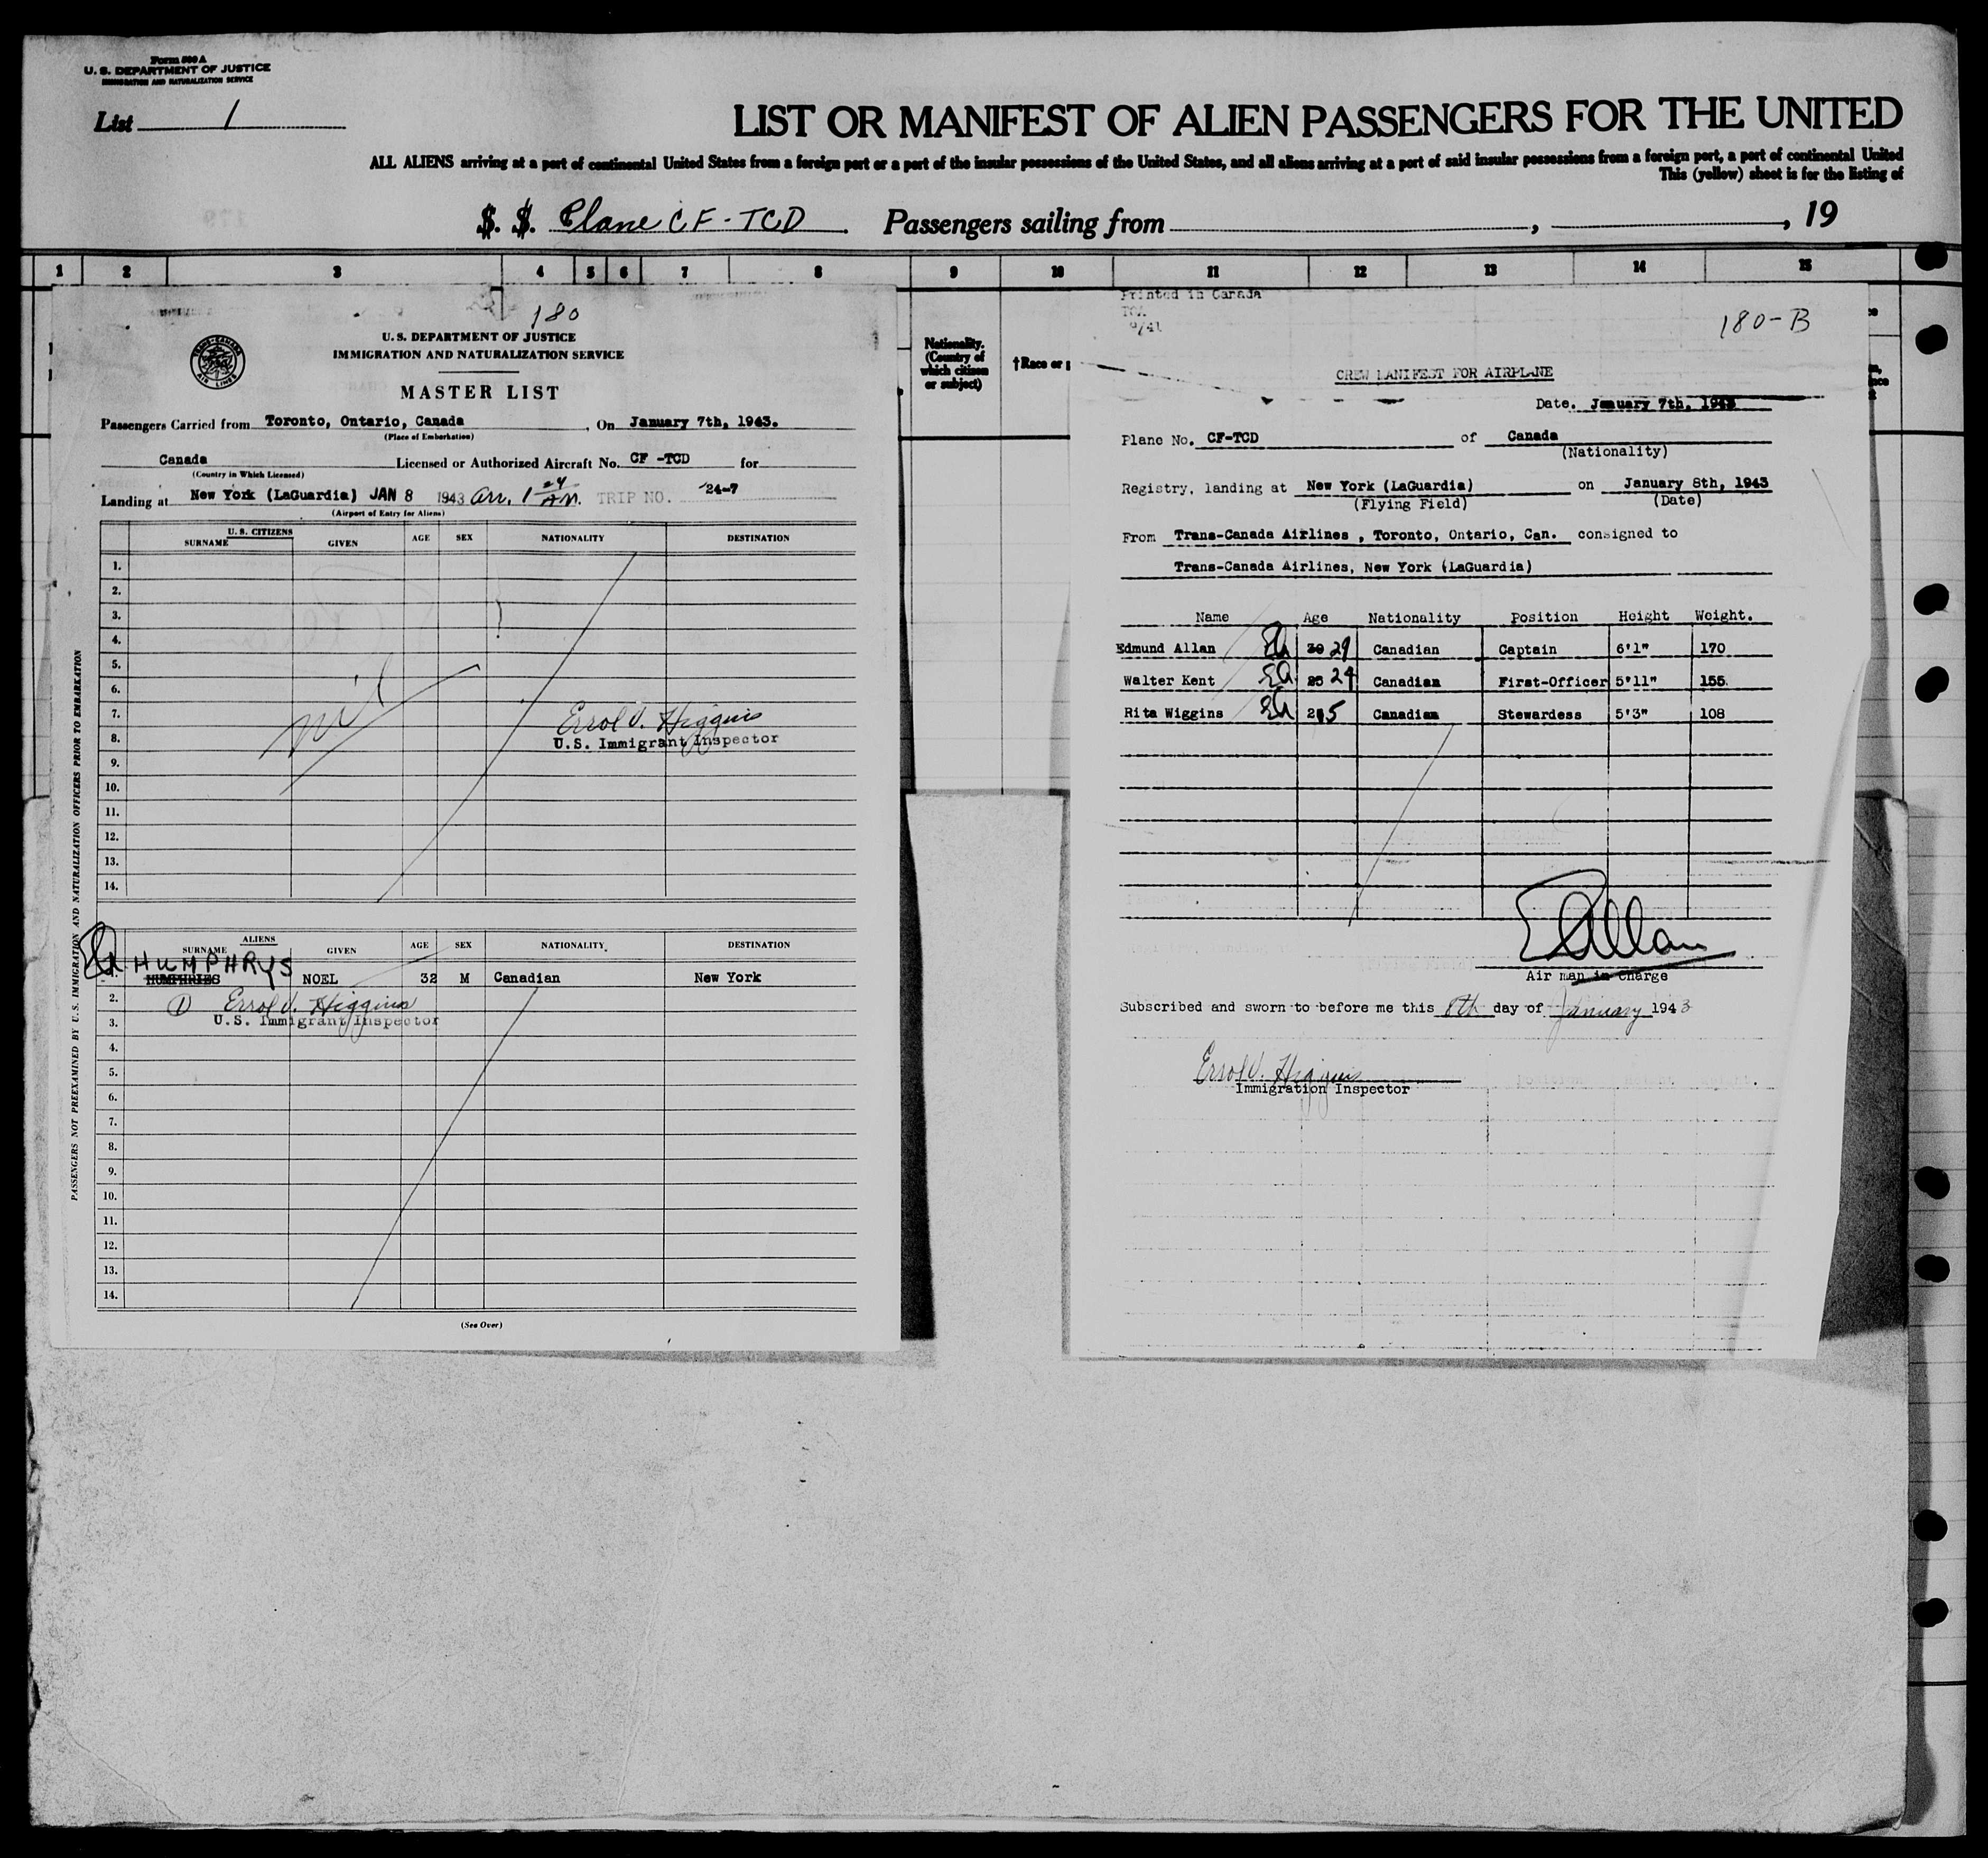 Form 500 A
U. S. DEPARTMENT OF JUSTICE
IMMIGRATION AND NATURALIZATION SERVICE
List 1
LIST OR MANIFEST OF ALIEN PASSENGERS FOR THE UNITED
ALL ALIENS arriving at a port of continental United States from a foreign port or a port of the insular possessions of the United States, and all aliens arriving at a port of said insular possessions from a foreign port, a port of continental United
This (yellow) sheet is for the listing of
S. S. Plane CF-TCD Passengers sailing from , , 19
1 2 3 4 5 6 7 8 9 10 11 12 13 14 15
Nationality.
(Country of
which citizen
or subject)
†Race or
180
TRANS-CANADA AIR LINES
U. S. DEPARTMENT OF JUSTICE
IMMIGRATION AND NATURALIZATION SERVICE
MASTER LIST
Passengers Carried from Toronto, Ontario, Canada , On January 7th, 1943.
(Place of Embarkation)
Canada Licensed or Authorized Aircraft No. CF -TCD for
(Country in Which Licensed)
Landing at New York (LaGuardia) JAN 8 1943 arr. 1 24 AM. TRIP NO. 24-7
(Airport of Entry for Aliens)
U. S. CITIZENS
SURNAME GIVEN AGE SEX NATIONALITY DESTINATION
1.
2.
3.
4.
5.
6.
7. nil Errol V. Higgins
8. U.S. Immigrant Inspector
9.
10.
11.
12.
13.
14.
ALIENS
SURNAME GIVEN AGE SEX NATIONALITY DESTINATION
EA HUMPHRYS
1. HUMPHRIES NOEL 32 M Canadian New York
2. 1 Errol V. Higgins
3. U.S. Immigrant Inspector
4.
5.
6.
7.
8.
9.
10.
11.
12.
13.
14.
(See Over)
PASSENGERS NOT PREEXAMINED BY U.S. IMMIGRATION AND NATURALIZATION OFFICERS PRIOR TO EMBARKATION
Printed in Canada
TCA
9/41
180-B
CREW MANIFEST FOR AIRPLANE
Date. January 7th, 1943
Plane No. CF-TCD of Canada
(Nationality)
Registry, landing at New York (LaGuardia) on January 8th, 1943
(Flying Field) (Date)
From Trans-Canada Airlines , Toronto, Ontario, Can. consigned to
Trans-Canada Airlines, New York (LaGuardia)
Name Age Nationality Position Height Weight.
Edmund Allan EA 30 29 Canadian Captain 6'1" 170
Walter Kent EA 25 24 Canadian First-Officer 5'11" 155
Rita Wiggins EA 25 Canadian Stewardess 5'3" 108
E Allan
Air man in Charge
Subscribed and sworn to before me this 8th day of January 1943
Errol V. Higgins
Immigration Inspector